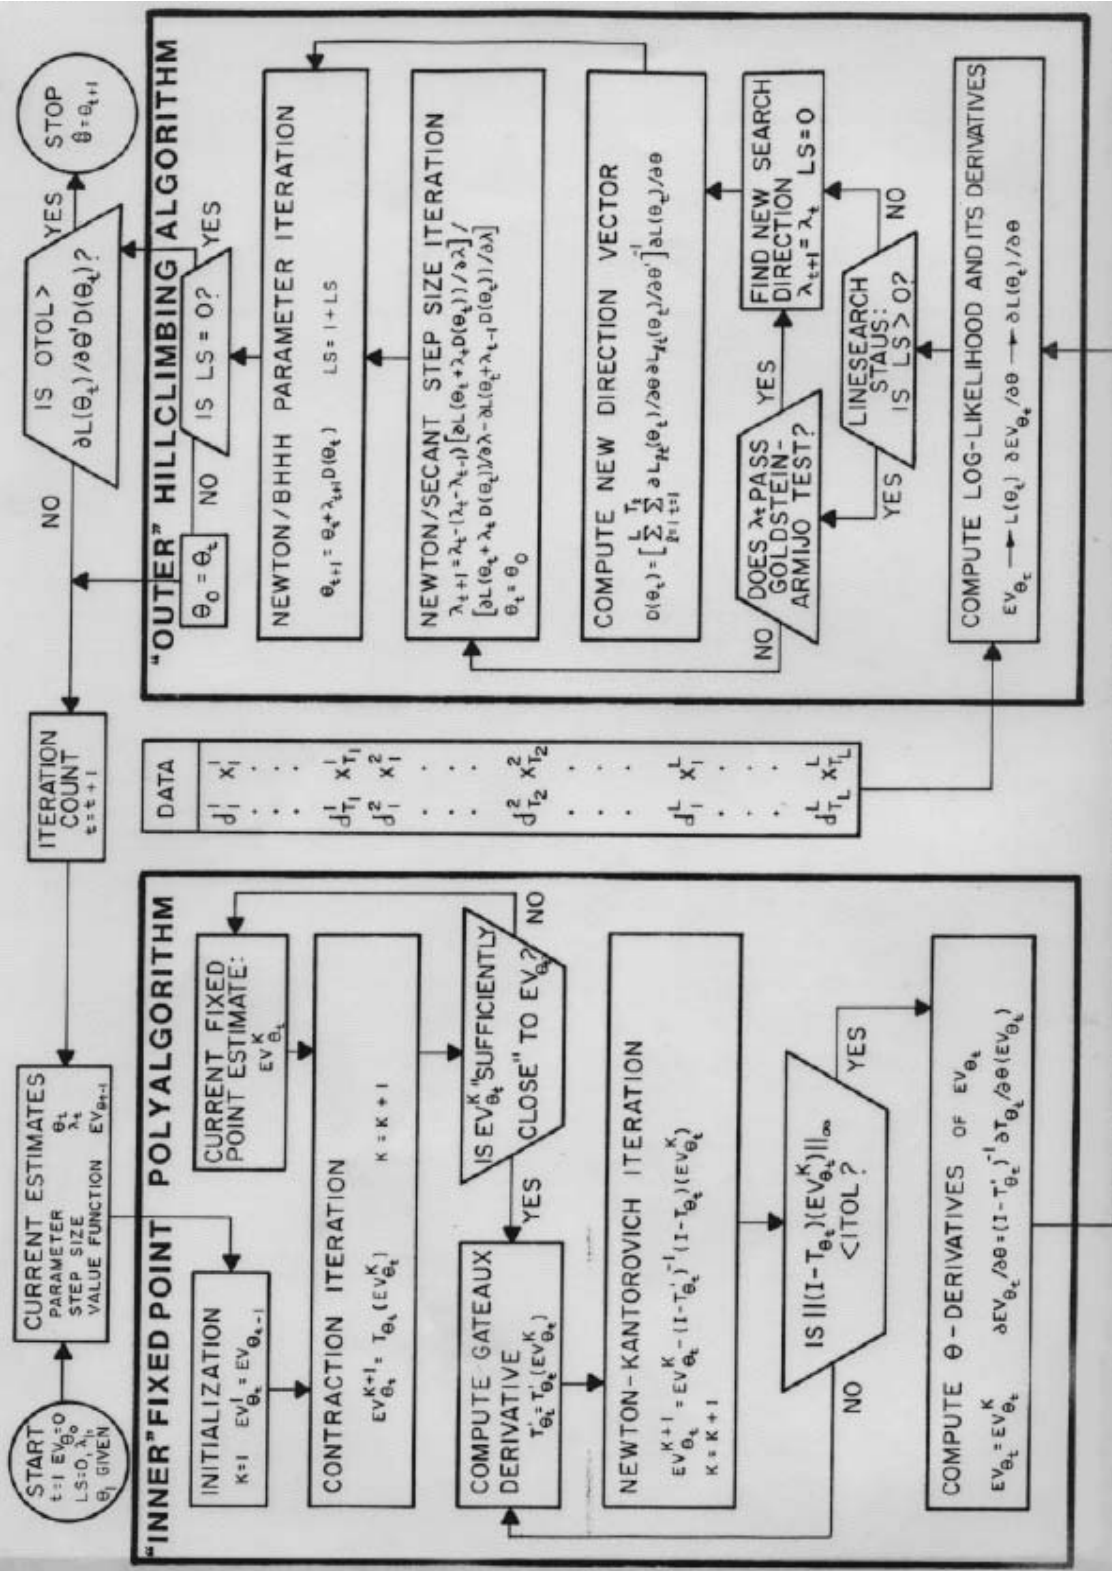 START
t=1 EV_θ₀=0
LS=0, λ₁,
θ₁ GIVEN
CURRENT ESTIMATES
PARAMETER θ_t
STEP SIZE λ_t
VALUE FUNCTION EV_θt-1
ITERATION
COUNT
t=t+1
NO
IS OTOL>
∂L(θ_t)/∂θ'D(θ_t)?
YES
STOP
θ̂=θ_t+1
"INNER" FIXED POINT POLYALGORITHM
INITIALIZATION
K=1 EV¹_θt = EV_θt-1
CURRENT FIXED
POINT ESTIMATE:
EV^K_θt
CONTRACTION ITERATION
EV^K+1_θt = T_θt(EV^K_θt) K=K+1
IS EV^K_θt "SUFFICIENTLY
CLOSE" TO EV_θt?
NO
YES
COMPUTE GATEAUX
DERIVATIVE
T'_θt=T'_θt(EV^K_θt)
NEWTON-KANTOROVICH ITERATION
EV^K+1_θt = EV^K_θt-(I-T'_θt)^-1(I-T_θt)(EV^K_θt)
K=K+1
IS ||(I-T_θt)(EV^K_θt)||∞
<ITOL?
NO
YES
COMPUTE θ-DERIVATIVES OF EV_θt
EV_θt=EV^K_θt ∂EV_θt/∂θ=(I-T'_θt)^-1 ∂T_θt/∂θ(EV_θt)
DATA
d¹₁ X¹₁
. .
. .
. .
d¹_T₁ X¹_T₁
d²₁ X²₁
. .
. .
. .
d²_T₂ X²_T₂
. .
. .
. .
d^L₁ X^L₁
. .
. .
. .
d^L_TL X^L_TL
"OUTER" HILLCLIMBING ALGORITHM
θ₀=θ_t
NO
IS LS=0?
YES
NEWTON/BHHH PARAMETER ITERATION
θ_t+1=θ_t+λ_t+1D(θ_t) LS=1+LS
NEWTON/SECANT STEP SIZE ITERATION
λ_t+1=λ_t-(λ_t-λ_t-1)[∂L(θ_t+λ_tD(θ_t))/∂λ]/
[∂L(θ_t+λ_tD(θ_t))/∂λ-∂L(θ_t+λ_t-1D(θ_t))/∂λ]
θ_t=θ₀
COMPUTE NEW DIRECTION VECTOR
D(θ_t)=[Σ^L_ℓ=1 Σ^Tℓ_t=1 ∂L_ℓt(θ_t)/∂θ ∂L_ℓt(θ_t)/∂θ']^-1 ∂L(θ_t)/∂θ
NO
DOES λ_t PASS
GOLDSTEIN-
ARMIJO TEST?
YES
FIND NEW SEARCH
DIRECTION
λ_t+1=λ_t LS=0
YES
LINESEARCH
STAUS:
IS LS>0?
NO
COMPUTE LOG-LIKELIHOOD AND ITS DERIVATIVES
EV_θt → L(θ_t) ∂EV_θt/∂θ → ∂L(θ_t)/∂θ